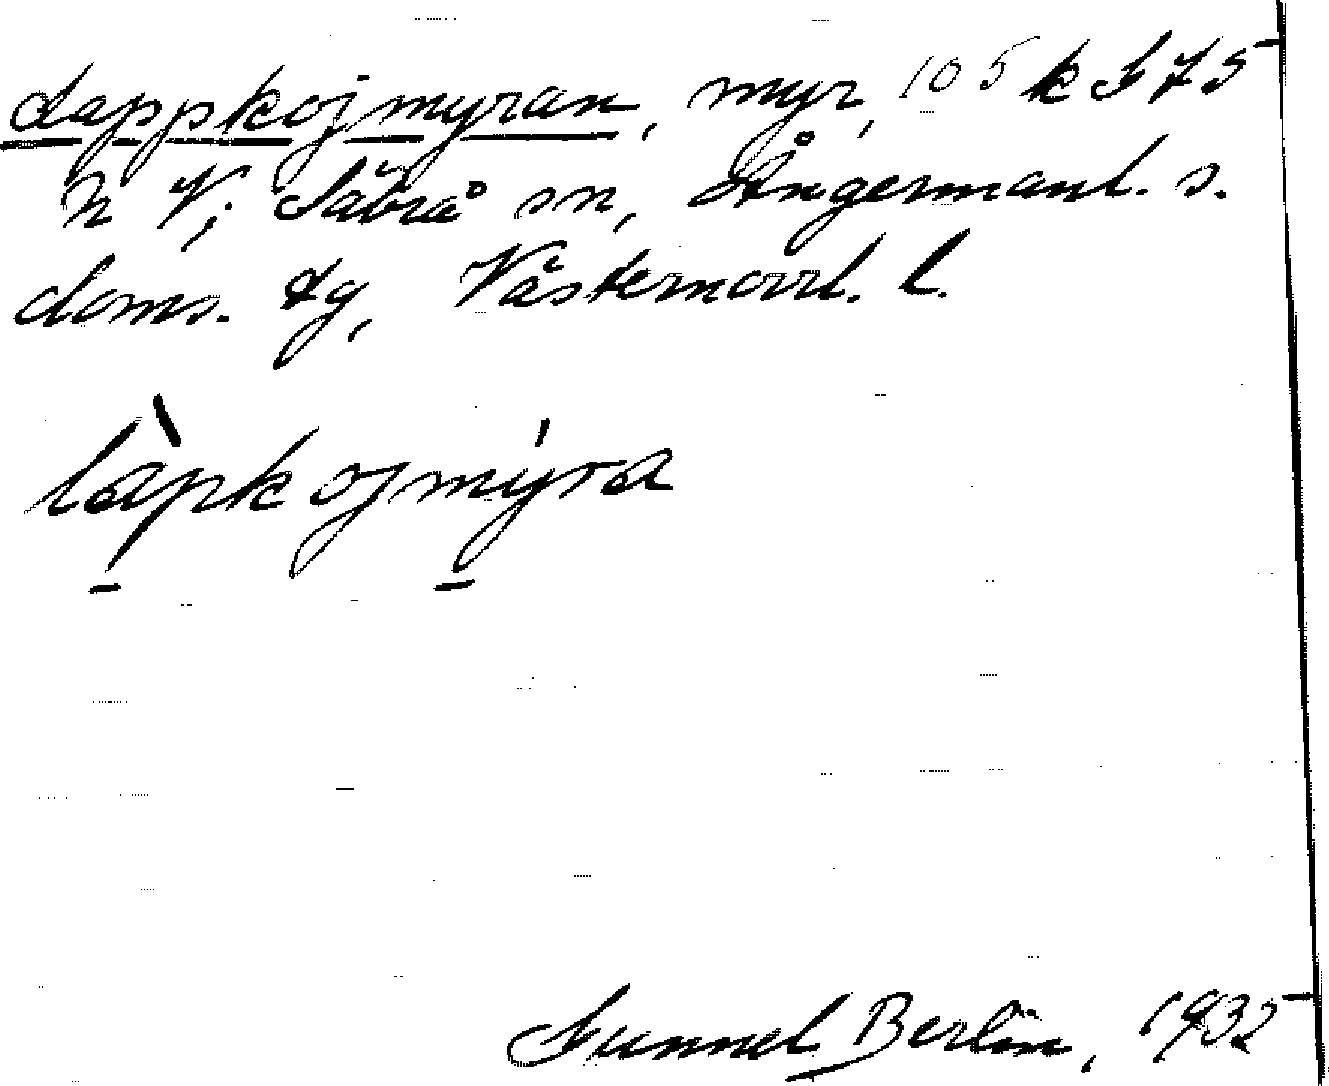 Lappkojmyran, myr, 105 k S 75
n V; Säbrå sn, Ångermanl. s.
doms. tg, Västernorrl. l.
làpkojmýra
Gunnel Berlin, 1932